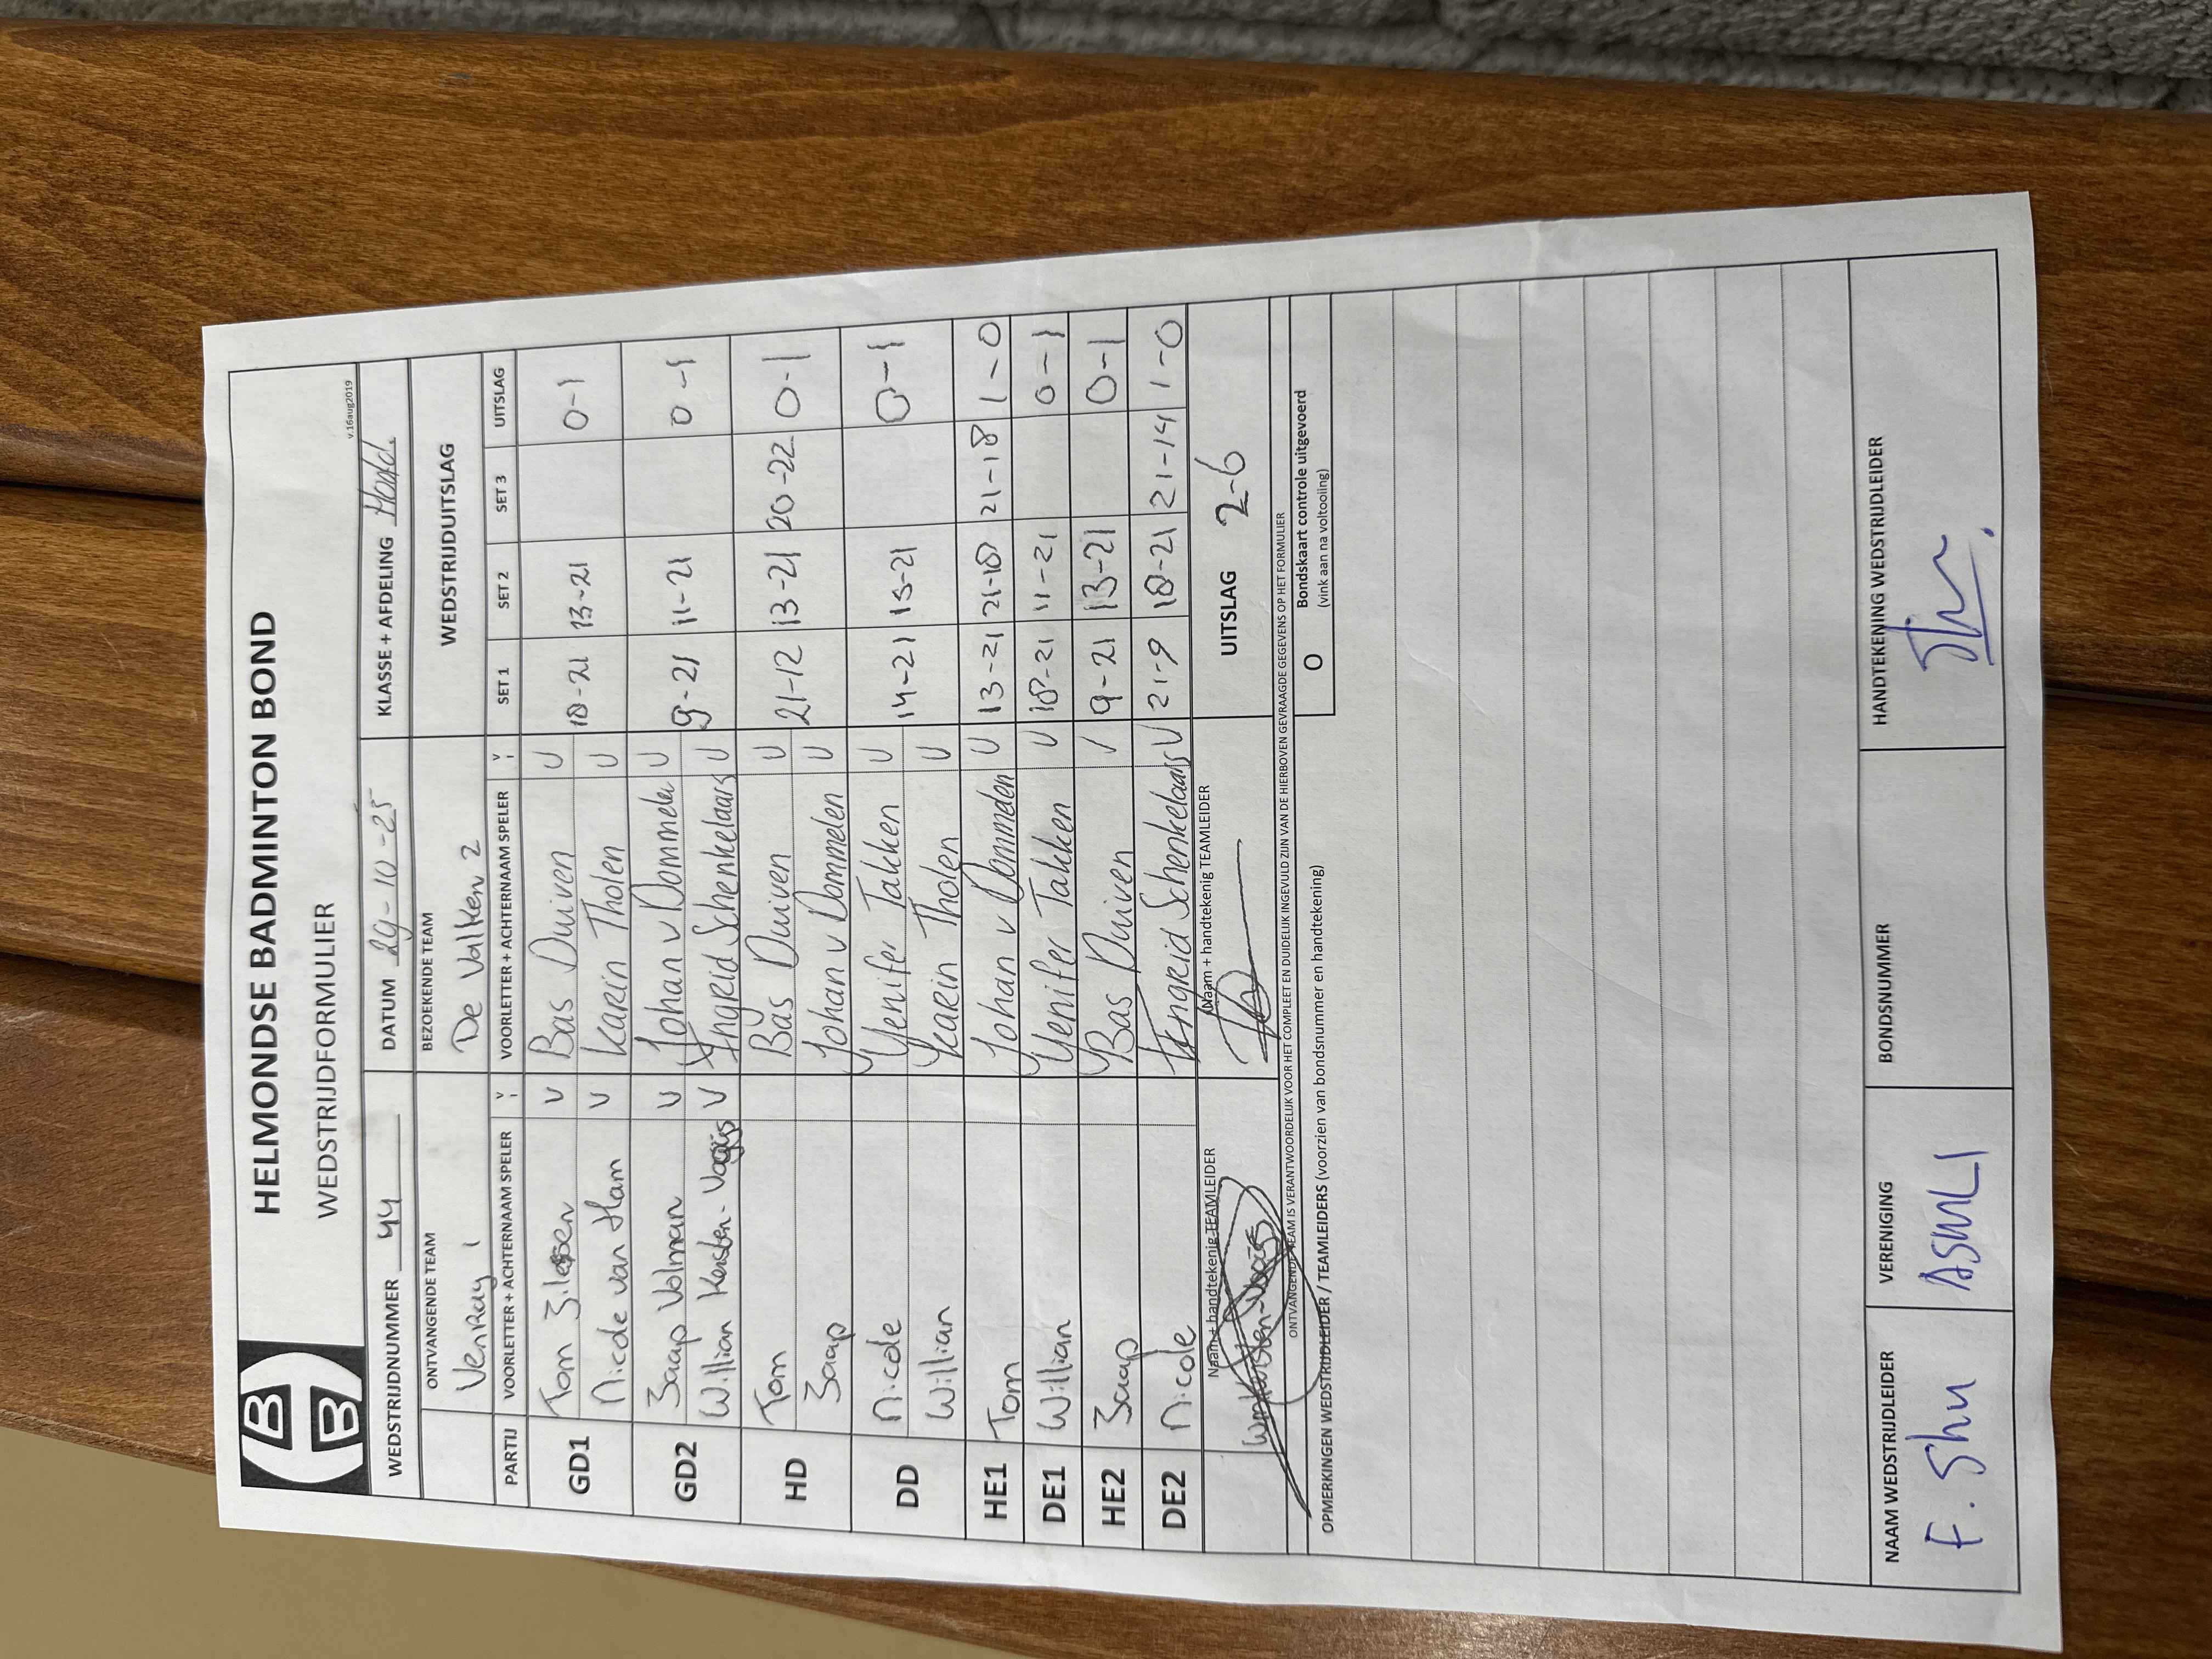 HBB
HELMONDSE BADMINTON BOND
WEDSTRIJDFORMULIER
v.16aug2019
WEDSTRIJDNUMMER 44 DATUM 29-10-25 KLASSE + AFDELING Hoofd
ONTVANGENDE TEAM BEZOEKENDE TEAM WEDSTRIJDUITSLAG
Venray 1 De Valken 2
PARTIJ VOORLETTER + ACHTERNAAM SPELER V VOORLETTER + ACHTERNAAM SPELER V SET 1 SET 2 SET 3 UITSLAG
GD1 Tom V Bas Duiven V 18-21 13-21 0-1
Nicole van Ham V Karin Tholen V
GD2 Jaap Volman V Johan v Dommelen V 9-21 11-21 0-1
Willian Kersten- V Ingrid Schenkelaars V
HD Tom Bas Duiven V 21-12 13-21 20-22 0-1
Jaap Johan v Dommelen V
DD Nicole Yenifer Takken V 14-21 15-21 0-1
Willian Karin Tholen V
HE1 Tom Johan v Dommelen V 13-21 21-18 21-18 1-0
DE1 Willian Yenifer Takken V 18-21 11-21 0-1
HE2 Jaap Bas Duiven V 9-21 13-21 0-1
DE2 Nicole Ingrid Schenkelaars V 21-9 18-21 21-14 1-0
Naam + handtekenig TEAMLEIDER Naam + handtekenig TEAMLEIDER UITSLAG 2-6
ONTVANGENDE TEAM IS VERANTWOORDELIJK VOOR HET COMPLEET EN DUIDELIJK INGEVULD ZIJN VAN DE HIERBOVEN GEVRAAGDE GEGEVENS OP HET FORMULIER
OPMERKINGEN WEDSTRIJDLEIDER / TEAMLEIDERS (voorzien van bondsnummer en handtekening)
O Bondskaart controle uitgevoerd
(vink aan na voltooiing)
NAAM WEDSTRIJDLEIDER VERENIGING BONDSNUMMER HANDTEKENING WEDSTRIJDLEIDER
F. Shu